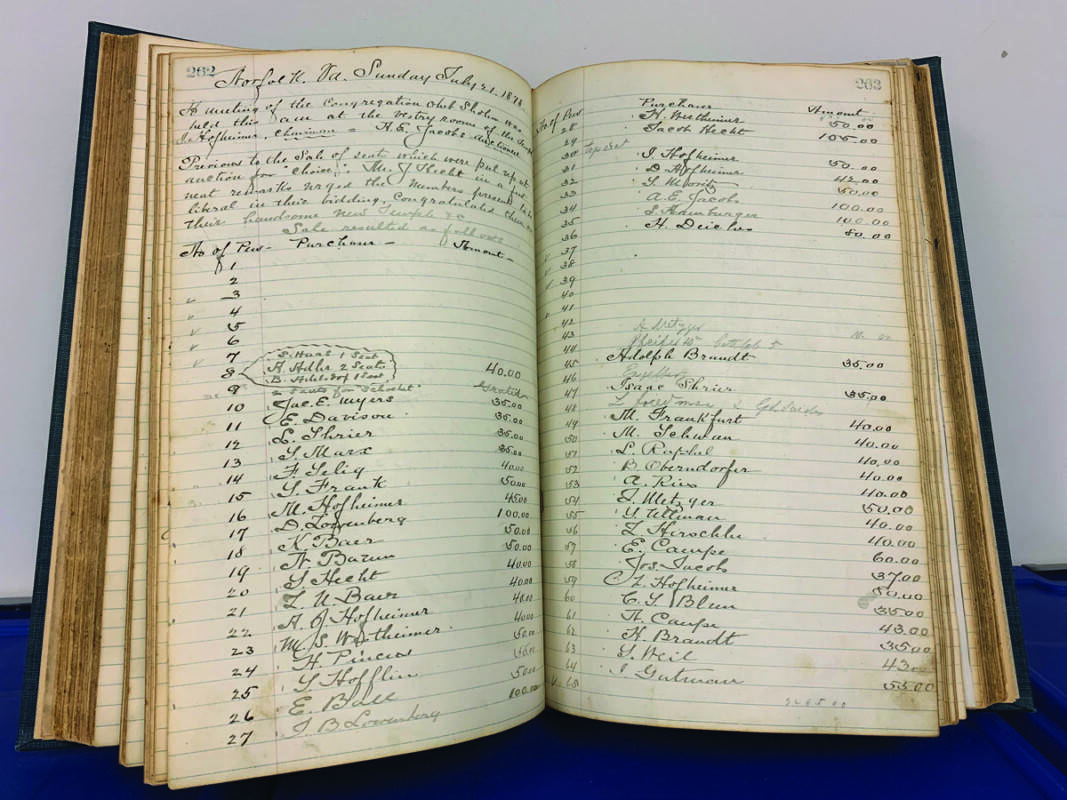 262
Norfolk, Va. Sunday July 21. 1878
A meeting of the Congregation Ohef Sholom was
held this a.m at the vestry rooms of the Temple
I. Hofheimer, chairman - A.E. Jacobs auctioneer
Previous to the Sale of seats which were put up at
auction for "choice", Mr. J Hecht in a
nent remarks urged the members present to be
liberal in their bidding, Congratulated them
their handsome New Temple &c
Sale resulted as follows
No of Pew - Purchaser - Amount -
1
2
3
4
5
6
7 S. Haas 1 Seat
8 A. Adler 2 Seats 40.00
1 Seat
9 2 Seats for Schochet Gratis
10 Jac. E. Myers 35.00
11 E. Davison 35.00
12 L. Shrier 35.00
13 S. Marx 35.00
14 F. Selig 40.00
15 S. Frank 50.00
16 M. Hofheimer 45.00
17 D. Lowenberg 100.00
18 K. Baer 50.00
19 50.00
20 S. Hecht 40.00
21 L. U. Baer 40.00
22 A. J Hofheimer 40.00
23 M. S. Wertheimer 40.00
24 H. Pincus 50.00
25 S. Hofflin
26 E. Ball 50.00
27 J. B. Lowenberg 100.00
263
No of Pew Purchaser Amount
28 H. Wertheimer 50.00
29 Jacob Hecht 105.00
30
31 I Hofheimer 50.00
32 D Hofheimer 42.00
33 50.00
34 A. E. Jacobs 100.00
35 S. Hamburger 100.00
36 H. Deiches 80.00
37
38
39
40
41
42
43
44
45 Adolph Brandt 35.00
46
47 Isaac Shrier 35.00
48
49 M. Frankfurt 40.00
50 M. Lehman 40.00
51 L. Raphel 40.00
52 B. Oberndorfer 40.00
53 A. Ries 40.00
54 I. Metzger 50.00
55 Y. Ullman 40.00
56 L. Herschler 40.00
57 E. Caupe 60.00
58 Jos. Jacobs 37.00
59 C. L. Hofheimer 50.00
60 C. S. Blun 35.00
61 A. Caupe 43.00
62 H. Brandt 35.00
63 S. Weil
64 I. Gutman 55.00
65